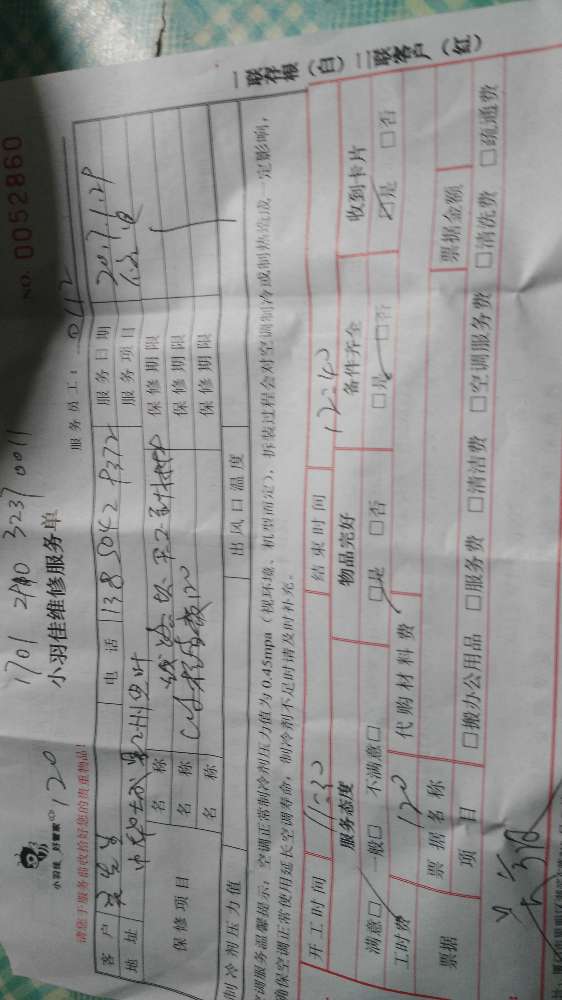 1701 2910 3237 0011
NO. 0052860
小羽佳 好管家
120
小羽佳维修服务单
服务员工： 0412
请您于服务前收拾好您的贵重物品！
客户 电话 138 5042 8372 服务日期 2017.1.29
地址 服务项目
保修项目
名称 保修期限
名称 保修期限
名称 保修期限
制冷剂压力值 出风口温度
空调服务温馨提示：空调正常制冷剂压力值为0.45mpa（视环境、机型而定），拆装过程会对空调制冷或制热造成一定影响，
确保空调正常使用延长空调寿命，制冷剂不足时请及时补充。
开工时间 11:30 结束时间 12:40
服务态度 物品完好 备件齐全 收到卡片
满意□ 一般□ 不满意□ □是 □否 □是 □否 □是 □否
工时费 120 代购材料费
票据 票据名称 票据金额
项目 □搬办公用品 □服务费 □清洁费 □空调服务费 □清洗费 □疏通费
一联存根（白）二联客户（红）